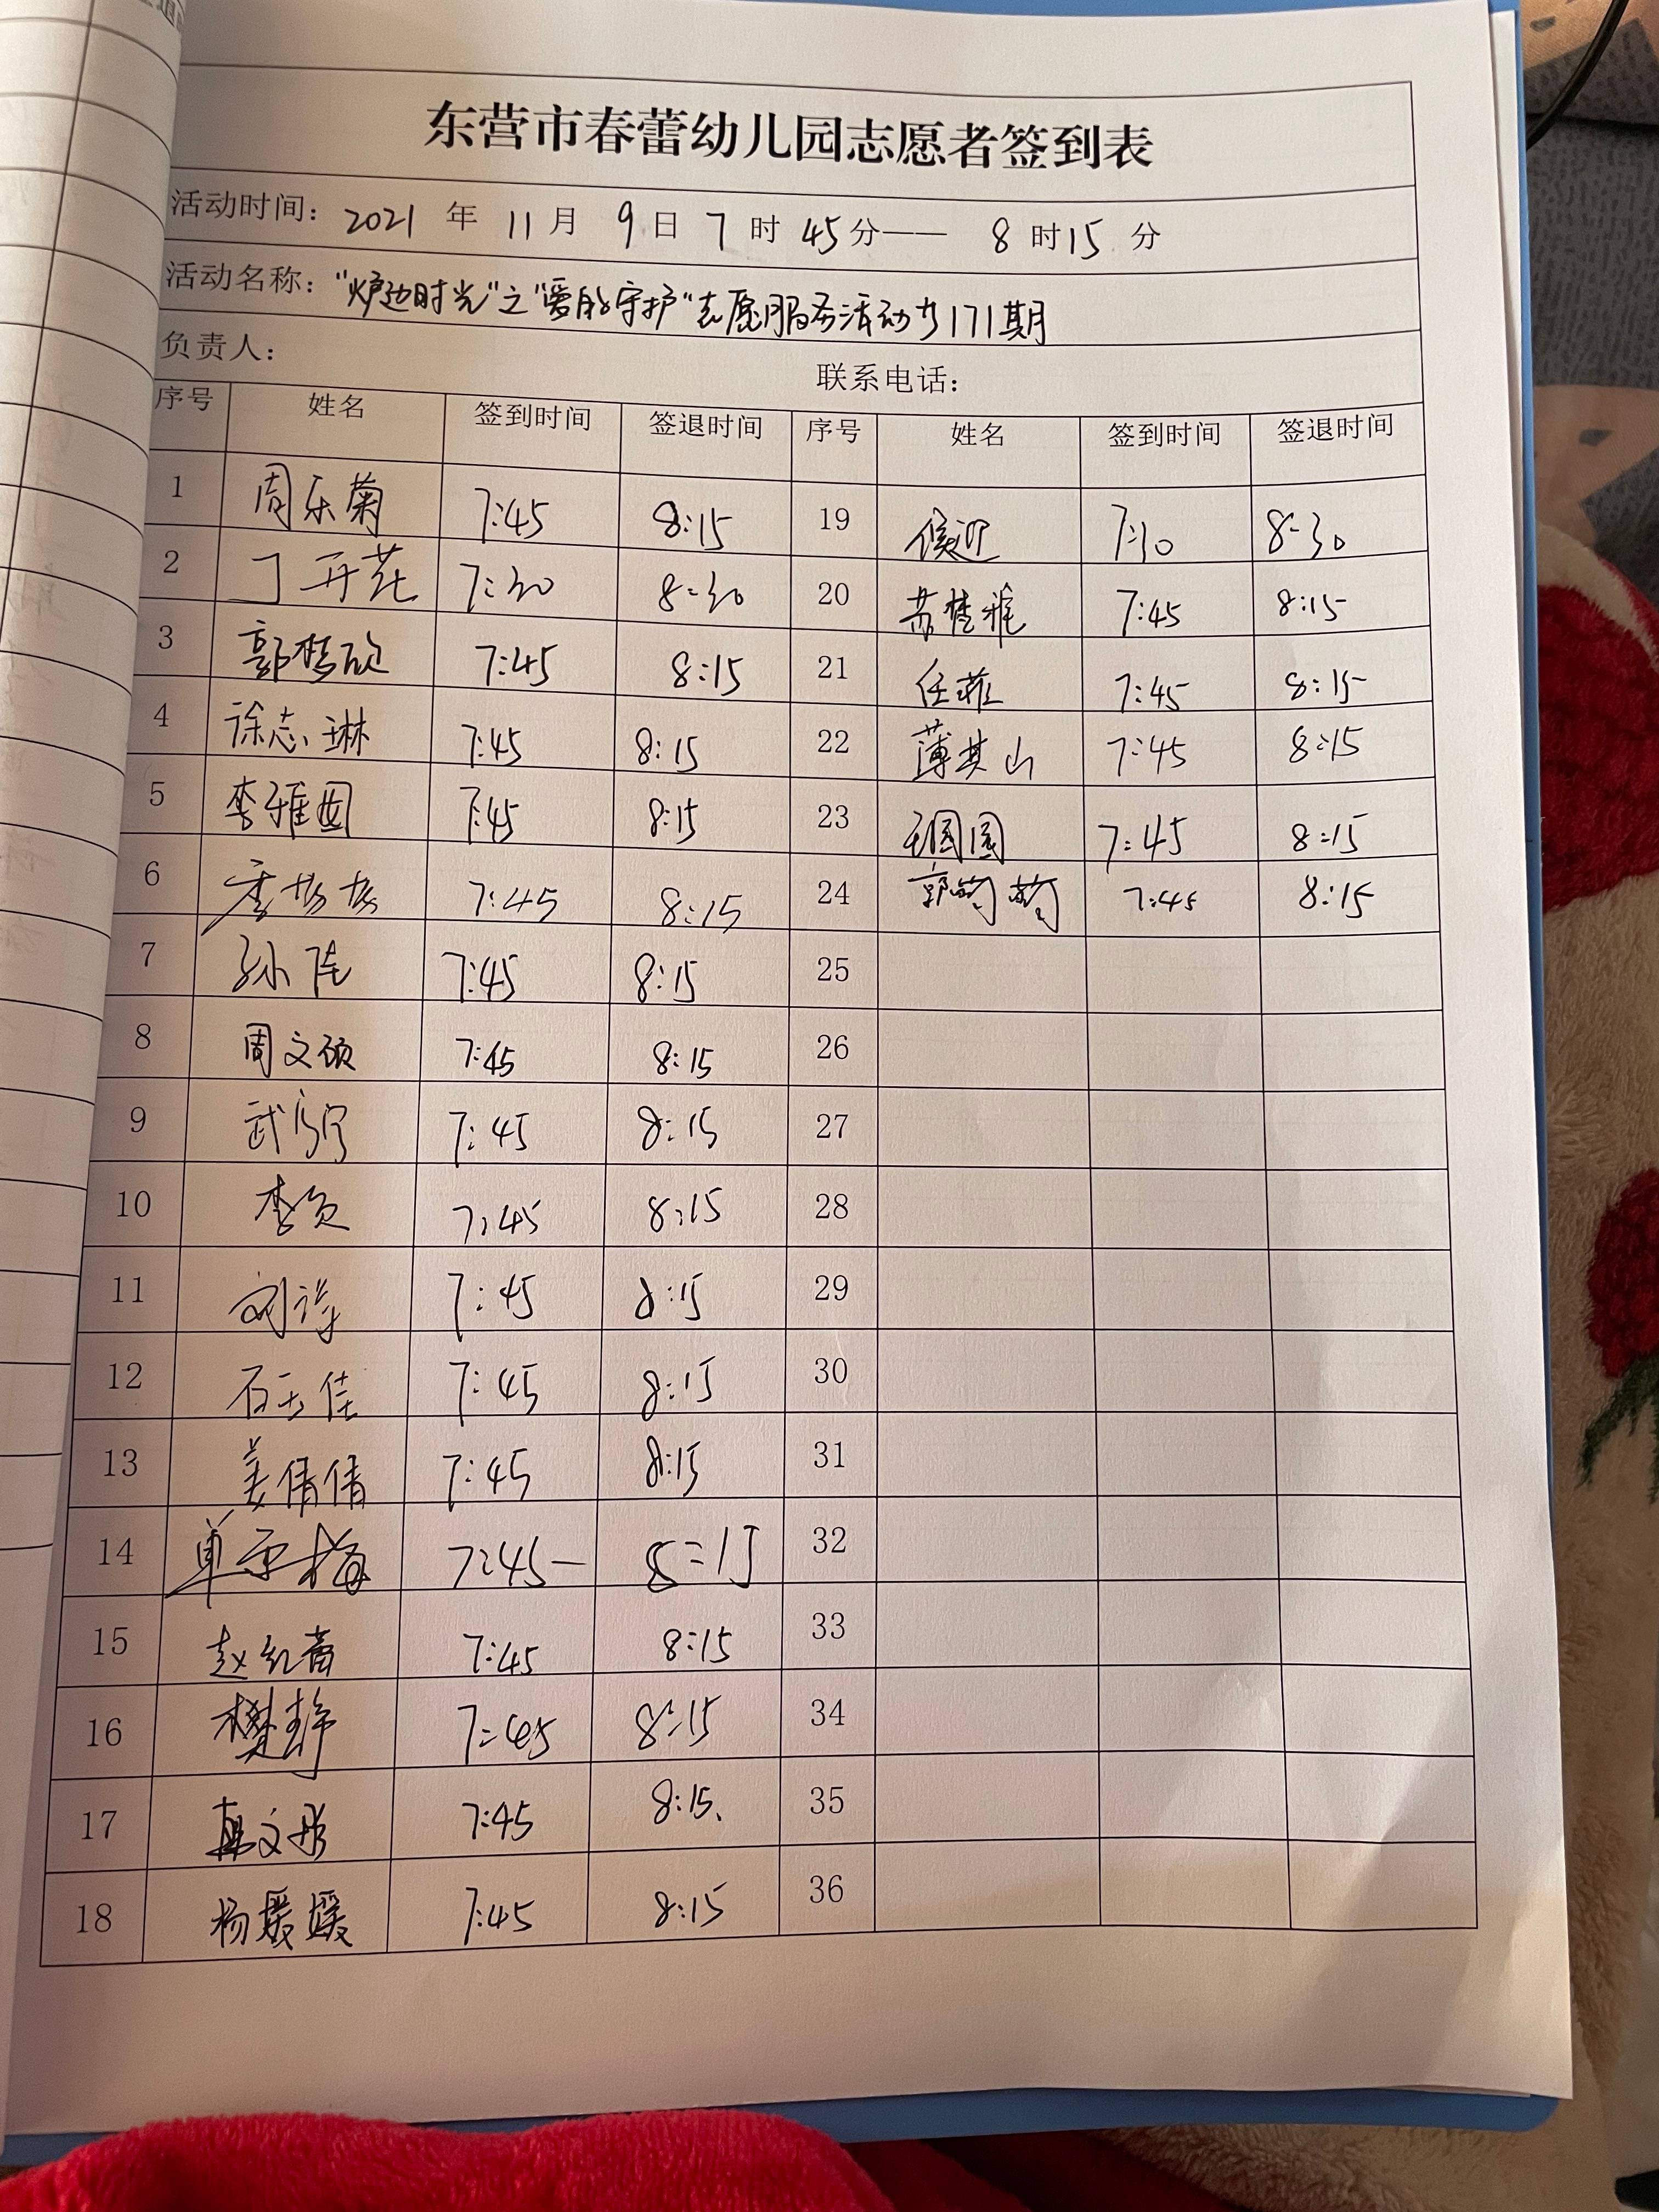 东营市春蕾幼儿园志愿者签到表
活动时间: 2021 年 11 月 9 日 7 时 45 分—— 8 时 15 分
活动名称: "炉边时光"之"爱的守护"志愿服务活动第171期
负责人: 联系电话:
序号 姓名 签到时间 签退时间 序号 姓名 签到时间 签退时间
1 周乐菊 7:45 8:15 19 侯迎 7:30 8:30
2 丁开花 7:30 8:30 20 苏楚雅 7:45 8:15
3 郭梦欣 7:45 8:15 21 任菲 7:45 8:15
4 徐志琳 7:45 8:15 22 薄其山 7:45 8:15
5 李雅图 7:45 8:15 23 王园园 7:45 8:15
6 李 7:45 8:15 24 郭萄萄 7:45 8:15
7 孙佳 7:45 8:15 25
8 周文硕 7:45 8:15 26
9 武 7:45 8:15 27
10 李 7:45 8:15 28
11 刘 7:45 8:15 29
12 石玉佳 7:45 8:15 30
13 姜倩倩 7:45 8:15 31
14 单 梅 7:45 8:15 32
15 赵红蕾 7:45 8:15 33
16 樊静 7:45 8:15 34
17 文彤 7:45 8:15 35
18 杨媛媛 7:45 8:15 36